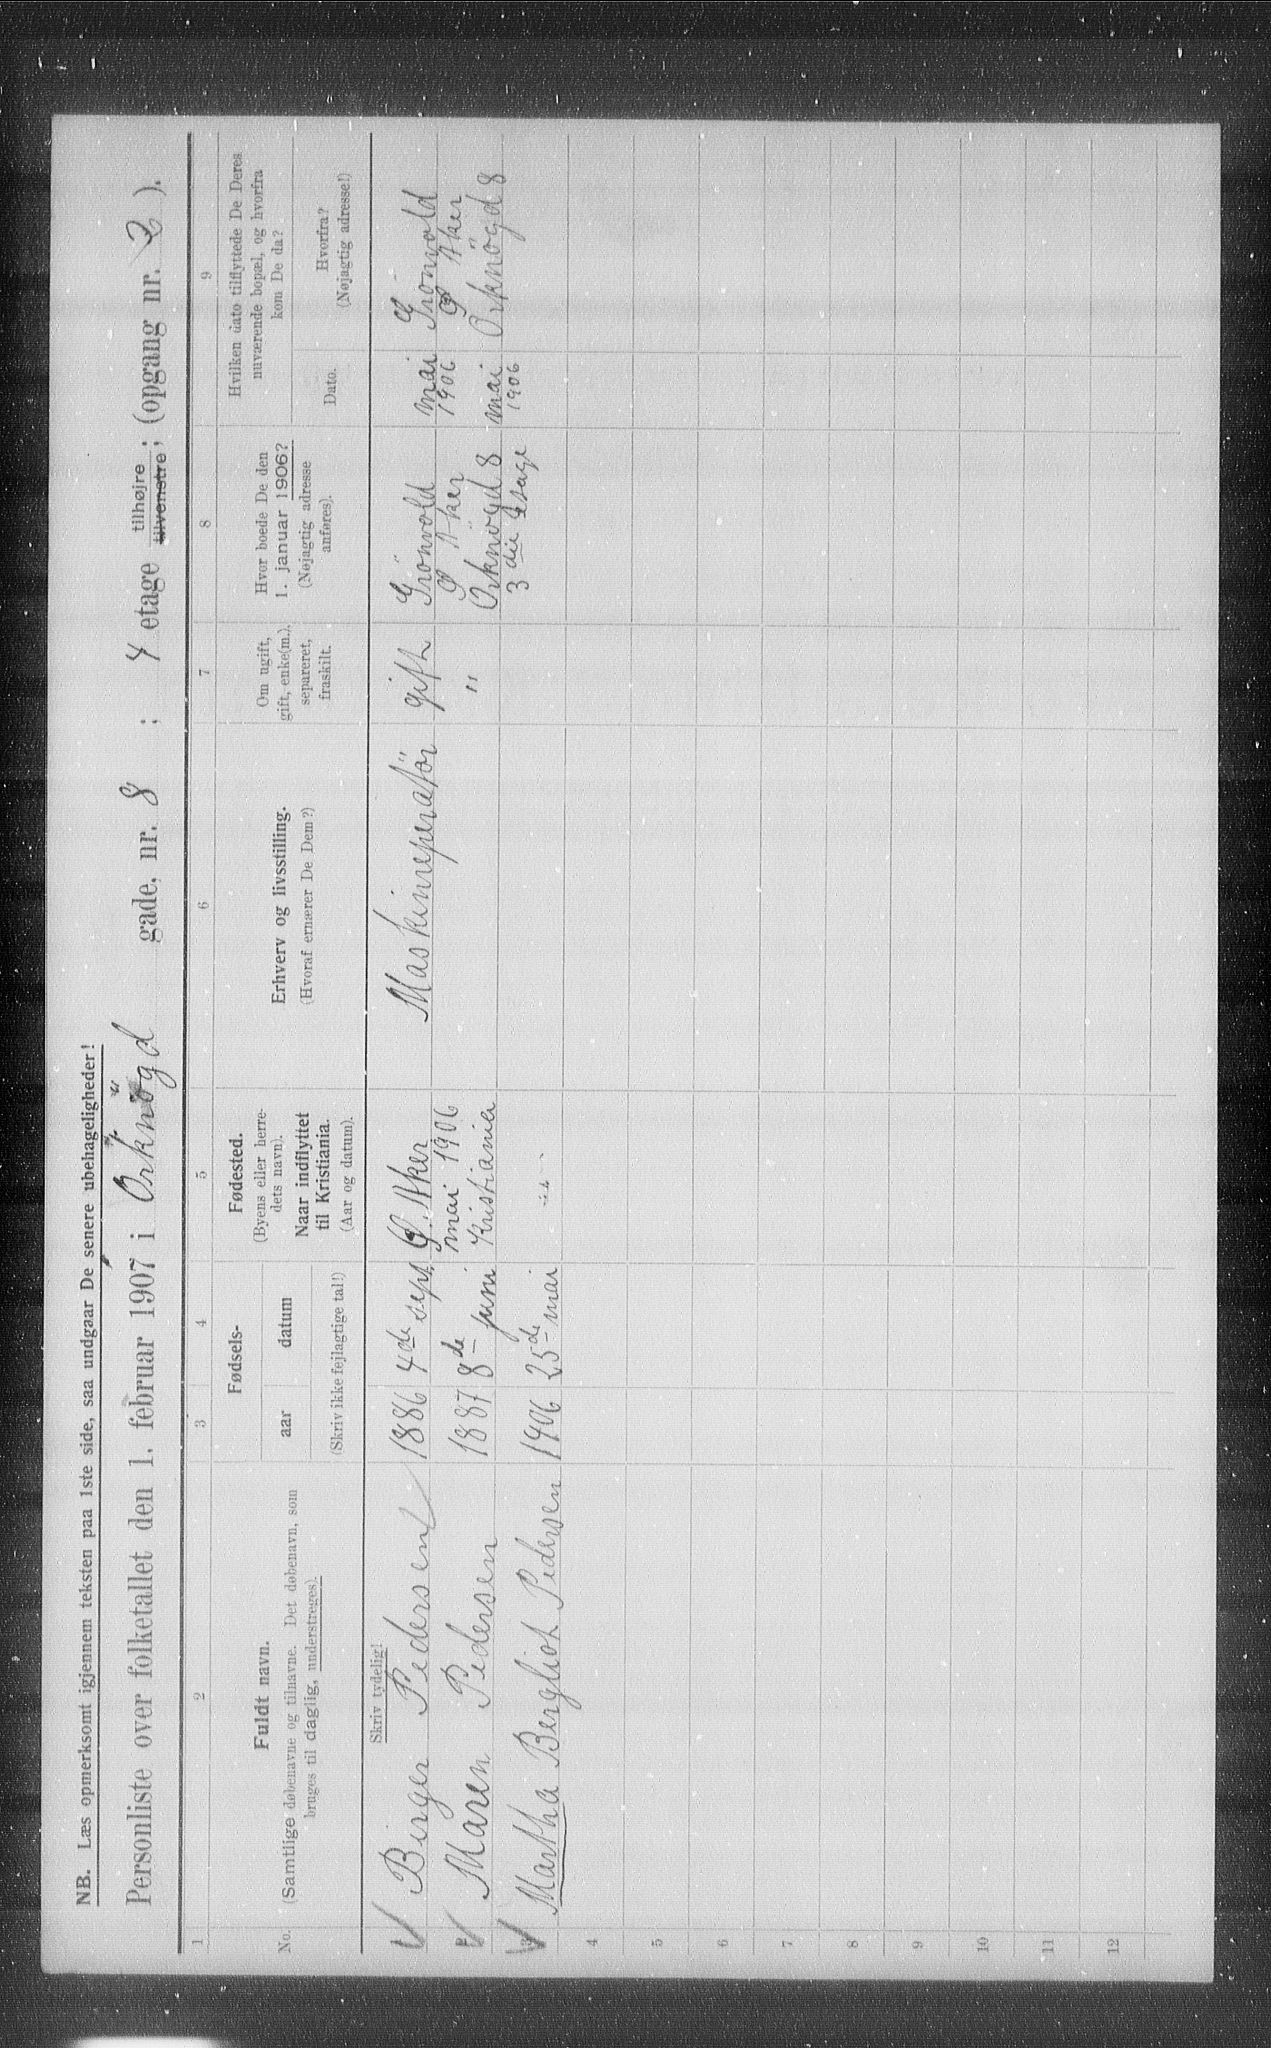 NB. Læs opmerksomt igjennem teksten paa 1ste side, saa undgaar De senere ubehageligheder!
Personliste over folketallet den 1. februar 1907 i Orknögd gade, nr. 8 ; 4 etage tilhøjre tilvenstre ; (opgang nr. 2 ).
1 2 3 4 5 6 7 8 9
No.
Fuldt navn.
(Samtlige døbenavne og tilnavne. Det døbenavn, som
bruges til daglig, understreges).
Fødsels-
aar datum
(Skriv ikke fejlagtige tal!)
Fødested.
(Byens eller herre-
dets navn).
Naar indflyttet
til Kristiania.
(Aar og datum).
Erhverv og livsstilling.
(Hvoraf ernærer De Dem?)
Om ugift,
gift, enke(m.),
separeret,
fraskilt.
Hvor boede De den
1. januar 1906?
(Nøjagtig adresse
anføres).
Hvilken dato tilflyttede De Deres
nuværende bopæl, og hvorfra
kom De da?
Dato.
Hvorfra?
(Nøjagtig adresse!)
Skriv tydelig!
Birger Pedersen 1886 4de sept. Ø. Aker Maskinreperatör gift Grönvold mai Grönvold
mai 1906 Ø Aker 1906 Ø Aker
Maren Pedersen 1887 8de juni Kristiania " Orknögd 8 mai Orknögd 8
3die Etage 1906
3 Martha Bergliot Pedersen 1906 25de mai -"-
4
5
6
7
8
9
10
11
12